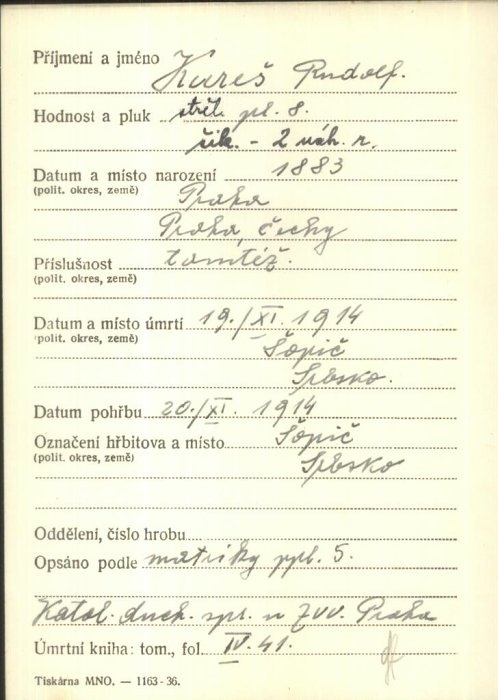 Příjmení a jméno Kareš Rudolf.
Hodnost a pluk střel. pl. 8.
šik. - 2 náh. r.
Datum a místo narození 1883
(polit. okres, země) Praha
Praha, Čechy
Příslušnost tamtéž.
(polit. okres, země)
Datum a místo úmrtí 19./XI. 1914
(polit. okres, země) Šopič
Srbsko.
Datum pohřbu 20./XI. 1914
Označení hřbitova a místo Šopič
(polit. okres, země) Srbsko
Oddělení, číslo hrobu
Opsáno podle matriky ppl. 5.
Katol. duch. spr. u ZVV. Praha
Úmrtní kniha: tom., fol. IV. 41.
Tiskárna MNO. — 1163-36.